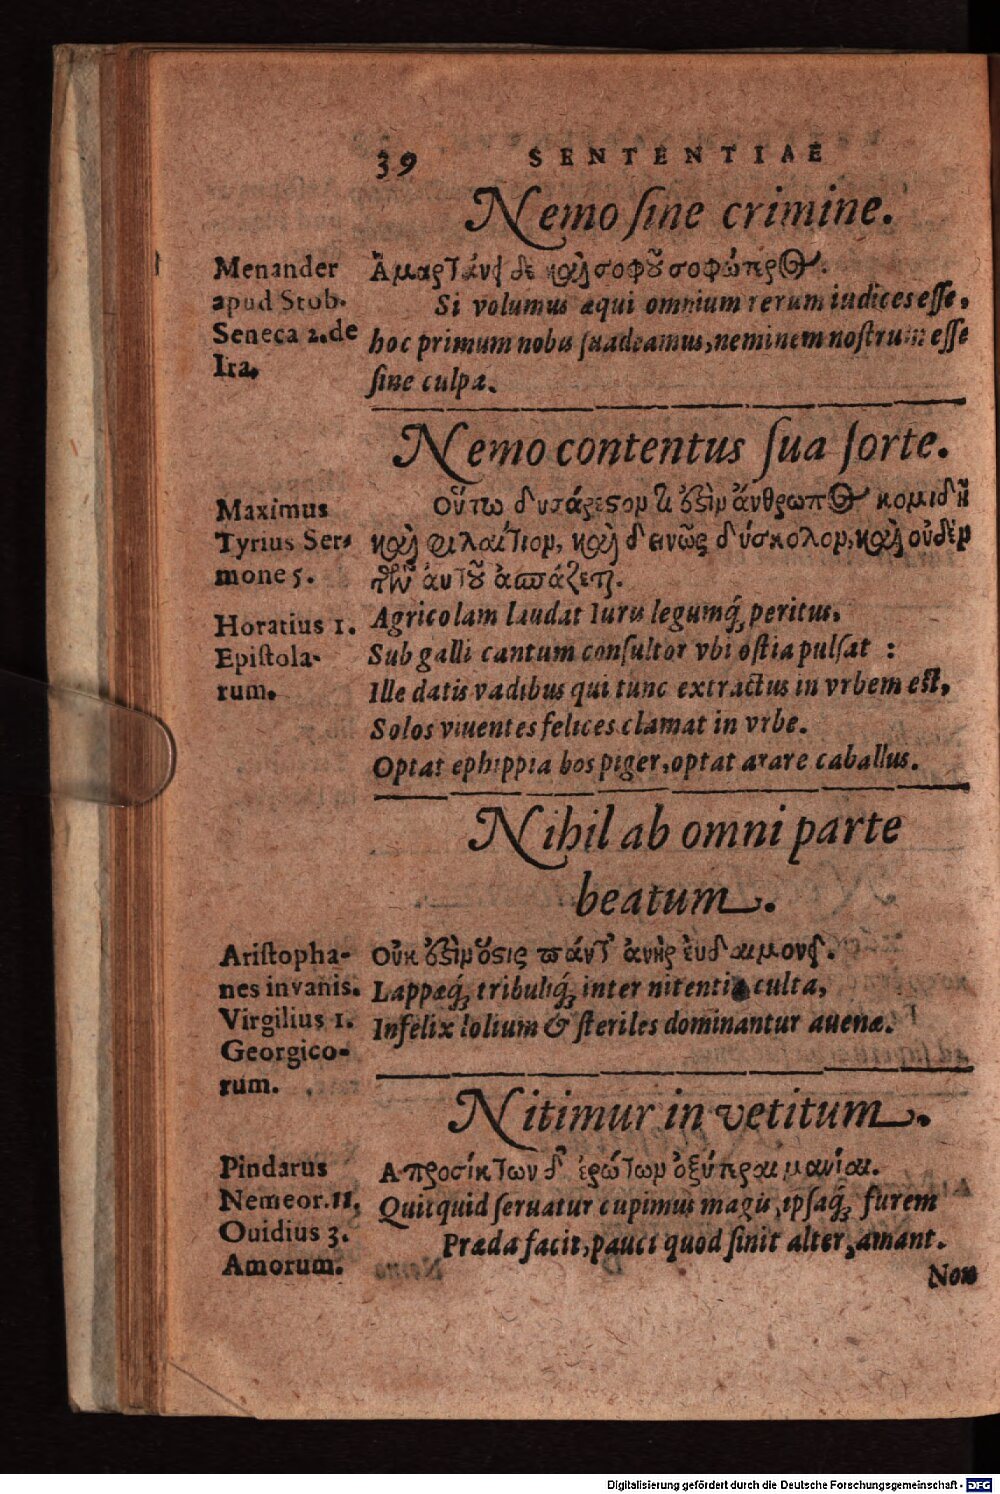 39 SENTENTIAE
Nemo ſine crimine.
Menander
apud Stob.
Seneca 2. de
Ira.
Ἁμαρτάνει δὲ καὶ σοφοῦ σοφώτερος.
Si volumus æqui omnium rerum iudices eſſe,
hoc primum nobis ſuadeamus, neminem noſtrum eſſe
ſine culpa.
Nemo contentus ſua ſorte.
Maximus
Tyrius Ser-
mone 5.
Οὕτω δυσάρεςον τι ὅξιν ἄνθρωπος κομιδῇ
καὶ φιλαίτιον, καὶ δεινῶς δύσκολον, καὶ οὐδὲν
τῶν αὑτοῦ ἀσπάζεται.
Horatius 1.
Epiſtola-
rum.
Agricolam laudat Iuris legumq́; peritus,
Sub galli cantum conſultor vbi oſtia pulſat :
Ille datis vadibus qui tunc extractus in vrbem eſt,
Solos viuentes felices clamat in vrbe.
Optat ephippia bos piger, optat arare caballus.
Nihil ab omni parte
beatum.
Ariſtopha-
nes in vanis.
Virgilius 1.
Georgico-
rum.
Lappæq́; tribuliq́; inter nitentia culta,
Infelix lolium & ſteriles dominantur auenæ.
Nitimur in vetitum.
Pindarus
Nemeor. 11.
Ouidius 3.
Amorum.
Ἀπροσίκτων δ' ἐρώτων ὀξύτεραι μανίαι.
Quicquid ſeruatur cupimus magis, ipſaq́; furem
Præda facit, pauci quod ſinit alter, amant.
Non
Digitalisierung gefördert durch die Deutsche Forschungsgemeinschaft - DFG